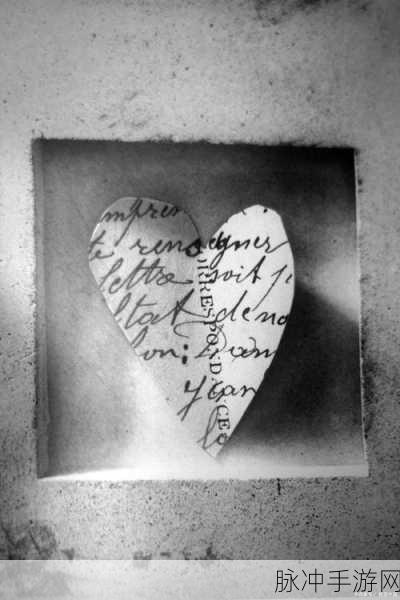 impren
te renseigner
lettre soit je
ltat de no
bon: Dam
y can
CORRESPONDANCE
脉冲手游网